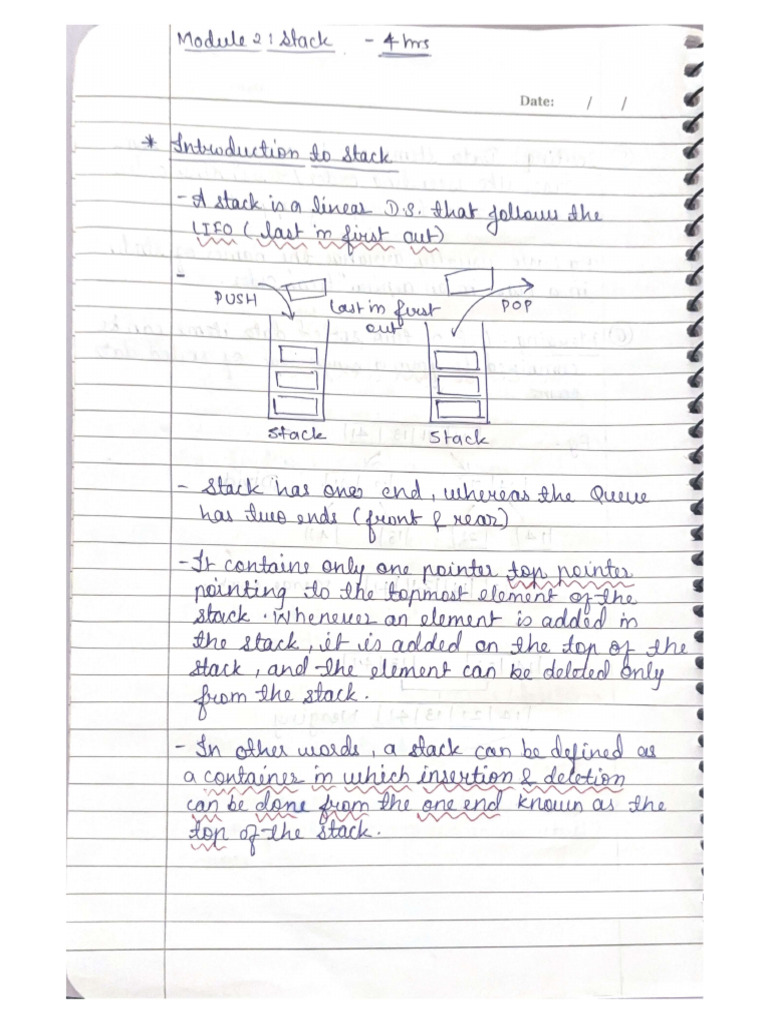 Module 2 : Stack - 4 hrs
Date: / /
* Introduction to Stack
- A stack is a linear D.S. that follows the
LIFO (last in first out)
-
PUSH
last in first
out
POP
Stack
Stack
- Stack has one end, whereas the Queue
has two ends (front & rear)
- It contains only one pointer top pointer
pointing to the topmost element of the
stack. Whenever an element is added in
the stack, it is added on the top of the
stack, and the element can be deleted only
from the stack.
- In other words, a stack can be defined as
a container in which insertion & deletion
can be done from the one end known as the
top of the stack.